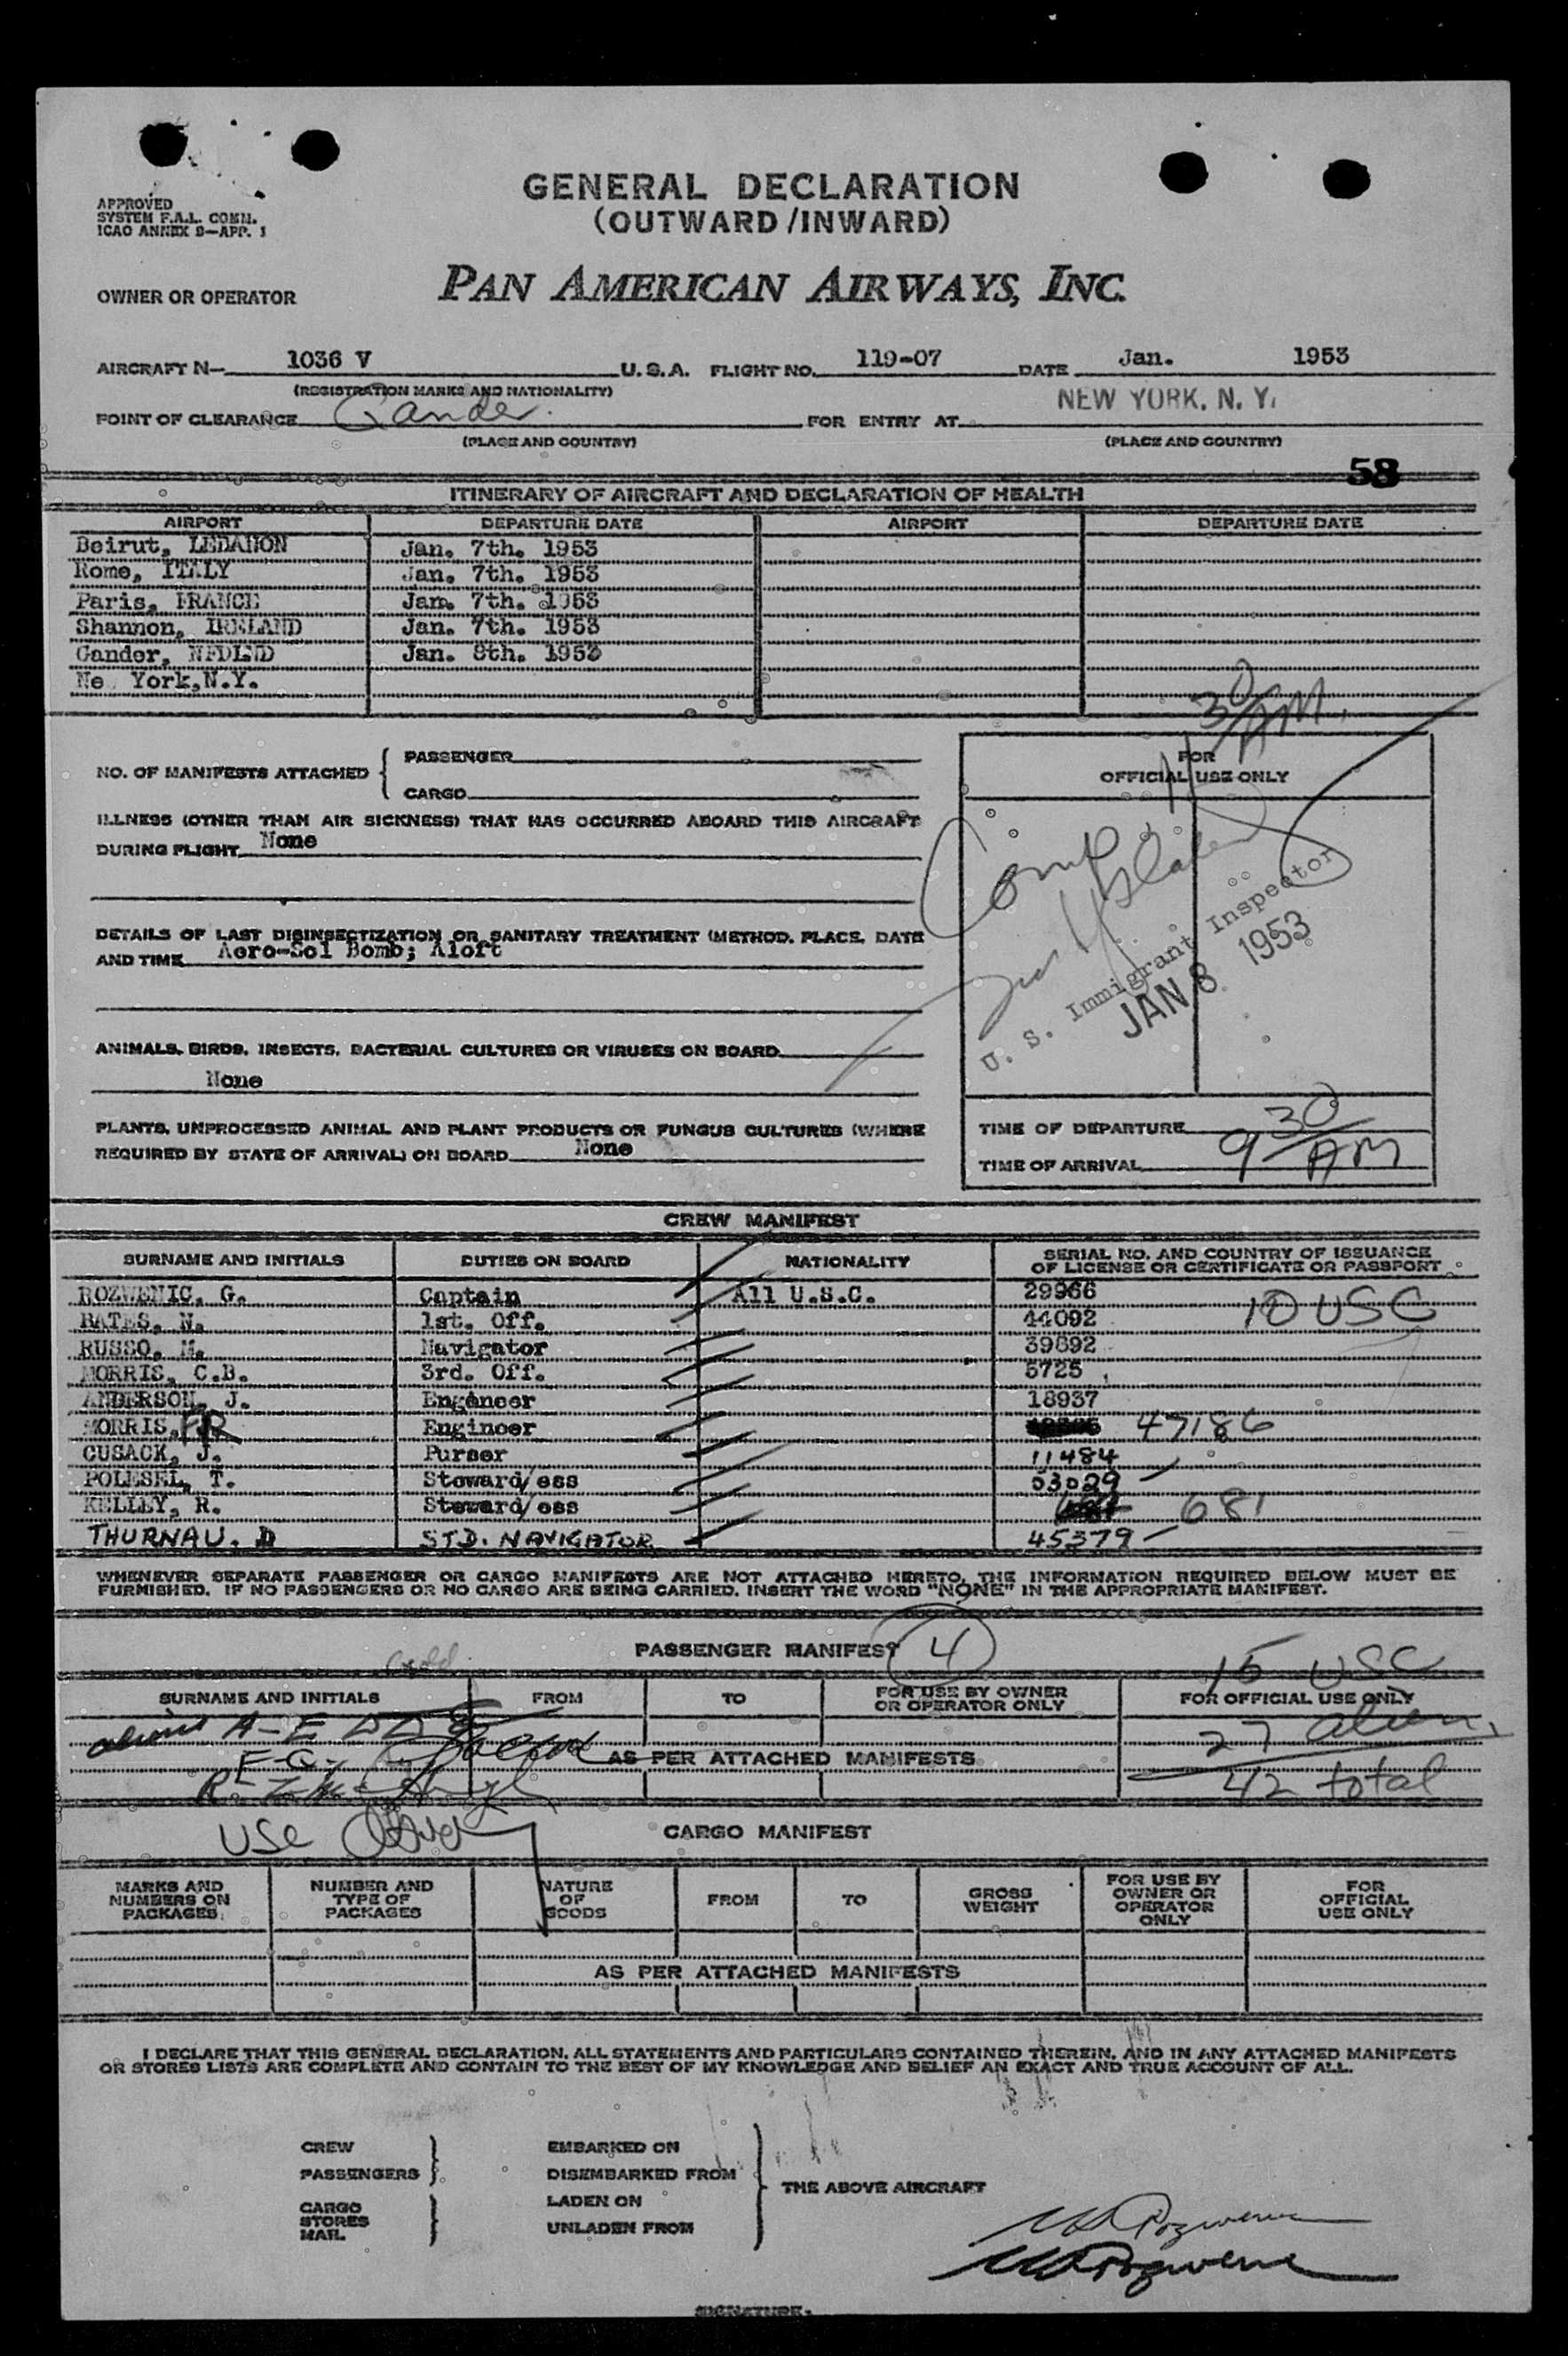 APPROVED
SYSTEM F.A.L. COMM.
ICAO ANNEX 9—APP. 1
GENERAL DECLARATION
(OUTWARD/INWARD)
OWNER OR OPERATOR PAN AMERICAN AIRWAYS, INC.
AIRCRAFT N- 1036 V U.S.A. FLIGHT NO. 119-07 DATE Jan. 1953
(REGISTRATION MARKS AND NATIONALITY)
POINT OF CLEARANCE Gander FOR ENTRY AT NEW YORK, N. Y.
(PLACE AND COUNTRY) (PLACE AND COUNTRY)
58
ITINERARY OF AIRCRAFT AND DECLARATION OF HEALTH
AIRPORT DEPARTURE DATE AIRPORT DEPARTURE DATE
Beirut, LEBANON Jan. 7th. 1953
Rome, ITALY Jan. 7th. 1953
Paris, FRANCE Jan. 7th. 1953
Shannon, IRELAND Jan. 7th. 1953
Gander, NFDLND Jan. 8th. 1953
Ne York,N.Y.
11 30 AM
NO. OF MANIFESTS ATTACHED { PASSENGER
CARGO
FOR
OFFICIAL USE ONLY
ILLNESS (OTHER THAN AIR SICKNESS) THAT HAS OCCURRED ABOARD THIS AIRCRAFT
DURING FLIGHT None
Comp.
U. S. Immigrant Inspector
JAN 8 1953
DETAILS OF LAST DISINSECTIZATION OR SANITARY TREATMENT (METHOD, PLACE, DATE
AND TIME Aero-Sol Bomb; Aloft
ANIMALS, BIRDS, INSECTS, BACTERIAL CULTURES OR VIRUSES ON BOARD
None
PLANTS, UNPROCESSED ANIMAL AND PLANT PRODUCTS OR FUNGUS CULTURES (WHERE
REQUIRED BY STATE OF ARRIVAL) ON BOARD None
TIME OF DEPARTURE
TIME OF ARRIVAL 9 30 AM
CREW MANIFEST
SURNAME AND INITIALS DUTIES ON BOARD NATIONALITY SERIAL NO. AND COUNTRY OF ISSUANCE
OF LICENSE OR CERTIFICATE OR PASSPORT
ROZWENIC, G. Captain All U.S.C. 29966 10 USC
BATES, N. 1st. Off. 44092
RUSSO, M. Navigator 39692
MORRIS, C.B. 3rd. Off. 5725
ANDERSON, J. Engineer 18937
MORRIS, Engineer 47186
CUSACK, J. Purser 11484
POLESEL, T. Steward/ess 03029
KELLEY, R. Steward/ess 681
THURNAU. D STD. NAVIGATOR 45379
WHENEVER SEPARATE PASSENGER OR CARGO MANIFESTS ARE NOT ATTACHED HERETO, THE INFORMATION REQUIRED BELOW MUST BE
FURNISHED. IF NO PASSENGERS OR NO CARGO ARE BEING CARRIED, INSERT THE WORD "NONE" IN THE APPROPRIATE MANIFEST.
PASSENGER MANIFEST 4 15 USC
SURNAME AND INITIALS FROM TO FOR USE BY OWNER
OR OPERATOR ONLY FOR OFFICIAL USE ONLY
A-E 27 alien
AS PER ATTACHED MANIFESTS
42 total
USC
CARGO MANIFEST
MARKS AND
NUMBERS ON
PACKAGES NUMBER AND
TYPE OF
PACKAGES NATURE
OF
GOODS FROM TO GROSS
WEIGHT FOR USE BY
OWNER OR
OPERATOR
ONLY FOR
OFFICIAL
USE ONLY
AS PER ATTACHED MANIFESTS
I DECLARE THAT THIS GENERAL DECLARATION, ALL STATEMENTS AND PARTICULARS CONTAINED THEREIN, AND IN ANY ATTACHED MANIFESTS
OR STORES LISTS ARE COMPLETE AND CONTAIN TO THE BEST OF MY KNOWLEDGE AND BELIEF AN EXACT AND TRUE ACCOUNT OF ALL.
CREW EMBARKED ON
PASSENGERS DISEMBARKED FROM
THE ABOVE AIRCRAFT
CARGO LADEN ON
STORES
MAIL UNLADEN FROM
SIGNATURE.